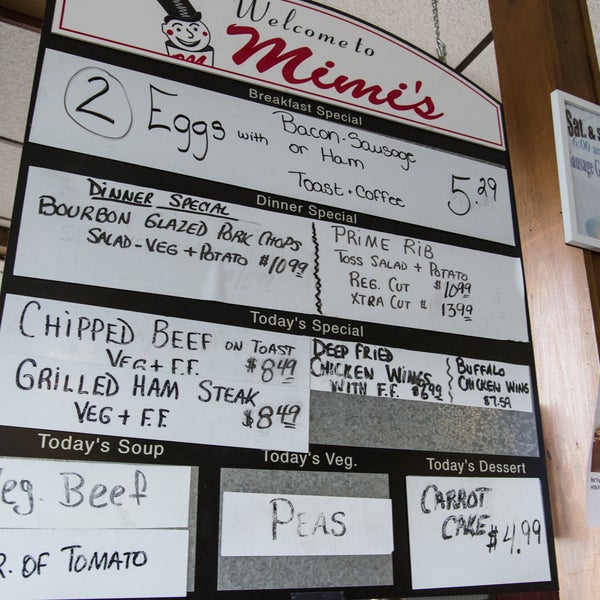 Welcome to
Mimi's
Breakfast Special
2 Eggs with Bacon-Sausage
or Ham
Toast + Coffee 5.29
Dinner Special
DINNER SPECIAL
BOURBON GLAZED PORK CHOPS
SALAD-VEG + POTATO $10.99
PRIME RIB
TOSS SALAD + POTATO
REG. CUT $10.99
XTRA CUT $ 13.99
Today's Special
CHIPPED BEEF ON TOAST
VEG + F.F. $8.49
GRILLED HAM STEAK
VEG + F.F. $8.49
DEEP FRIED
CHICKEN WINGS
WITH F.F. $6.99
BUFFALO
CHICKEN WING
$7.59
Today's Soup
Veg. Beef
R. OF TOMATO
Today's Veg.
PEAS
Today's Dessert
CARROT
CAKE $4.99
Sat. &
6:00 a